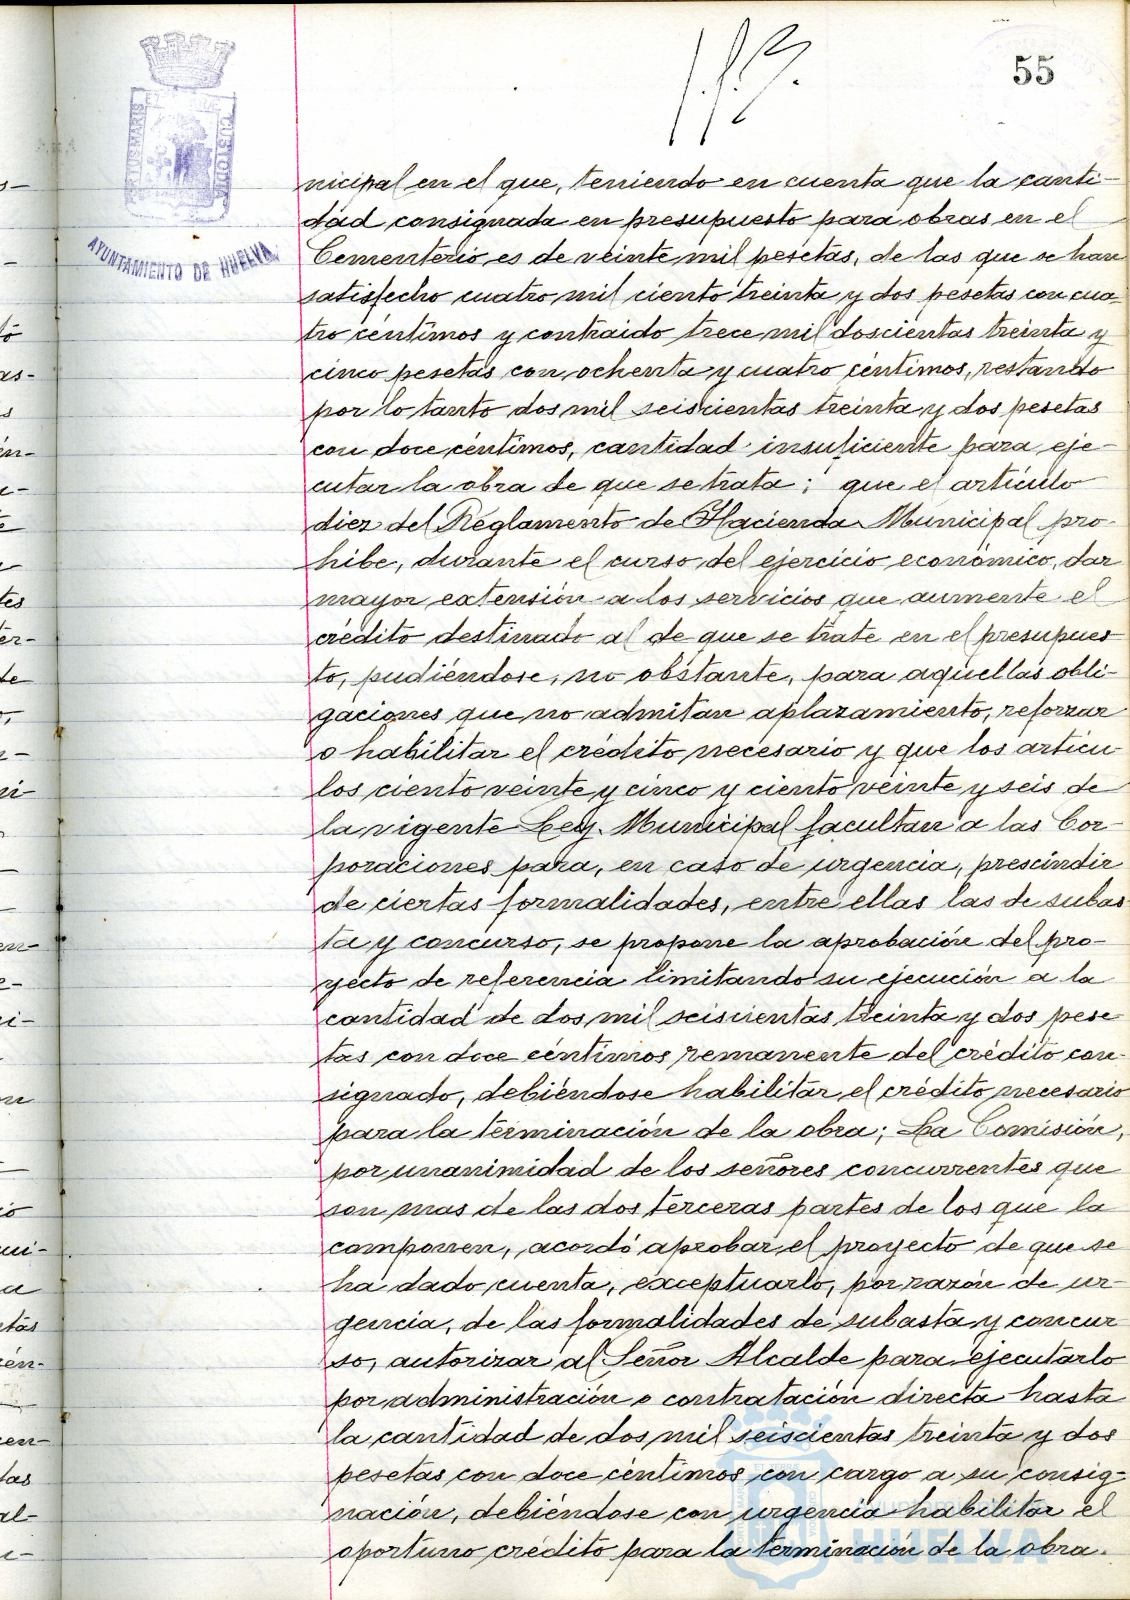 55
AYUNTAMIENTO DE HUELVA
nicipal en el que, teniendo en cuenta que la canti-
dad consignada en presupuesto para obras en el
Cementerio es de veinte mil pesetas, de las que se han
satisfecho cuatro mil ciento treinta y dos pesetas con cua-
tro céntimos y contraido trece mil doscientas treinta y
cinco pesetas con ochenta y cuatro céntimos, restando
por lo tanto dos mil seiscientas treinta y dos pesetas
con doce céntimos, cantidad insuficiente para eje-
cutar la obra de que se trata; que el artículo
diez del Reglamento de Hacienda Municipal pro-
hibe, durante el curso del ejercicio económico, dar
mayor extensión a los servicios que aumente el
crédito destinado al de que se trate en el presupues-
to, pudiéndose, no obstante, para aquellas obli-
gaciones que no admitan aplazamiento, reforzar
o habilitar el crédito necesario y que los artícu-
los ciento veinte y cinco y ciento veinte y seis de
la vigente Ley Municipal facultan a las Cor-
poraciones para, en caso de urgencia, prescindir
de ciertas formalidades, entre ellas las de subas
ta y concurso, se propone la aprobación del pro-
yecto de referencia limitando su ejecución a la
cantidad de dos mil seiscientas treinta y dos pese
tas con doce céntimos remanente del crédito con-
signado, debiéndose habilitar el crédito necesario
para la terminación de la obra; La Comisión,
por unanimidad de los señores concurrentes que
son mas de las dos terceras partes de los que la
componen, acordó aprobar el proyecto de que se
ha dado cuenta, exceptuarlo, por razón de ur-
gencia, de las formalidades de subasta y concur-
so, autorizar al Señor Alcalde para ejecutarlo
por administración o contratación directa hasta
la cantidad de dos mil seiscientas treinta y dos
pesetas con doce céntimos con cargo a su consig-
nación, debiéndose con urgencia habilitar el
oportuno crédito para la terminación de la obra.
HUELVA